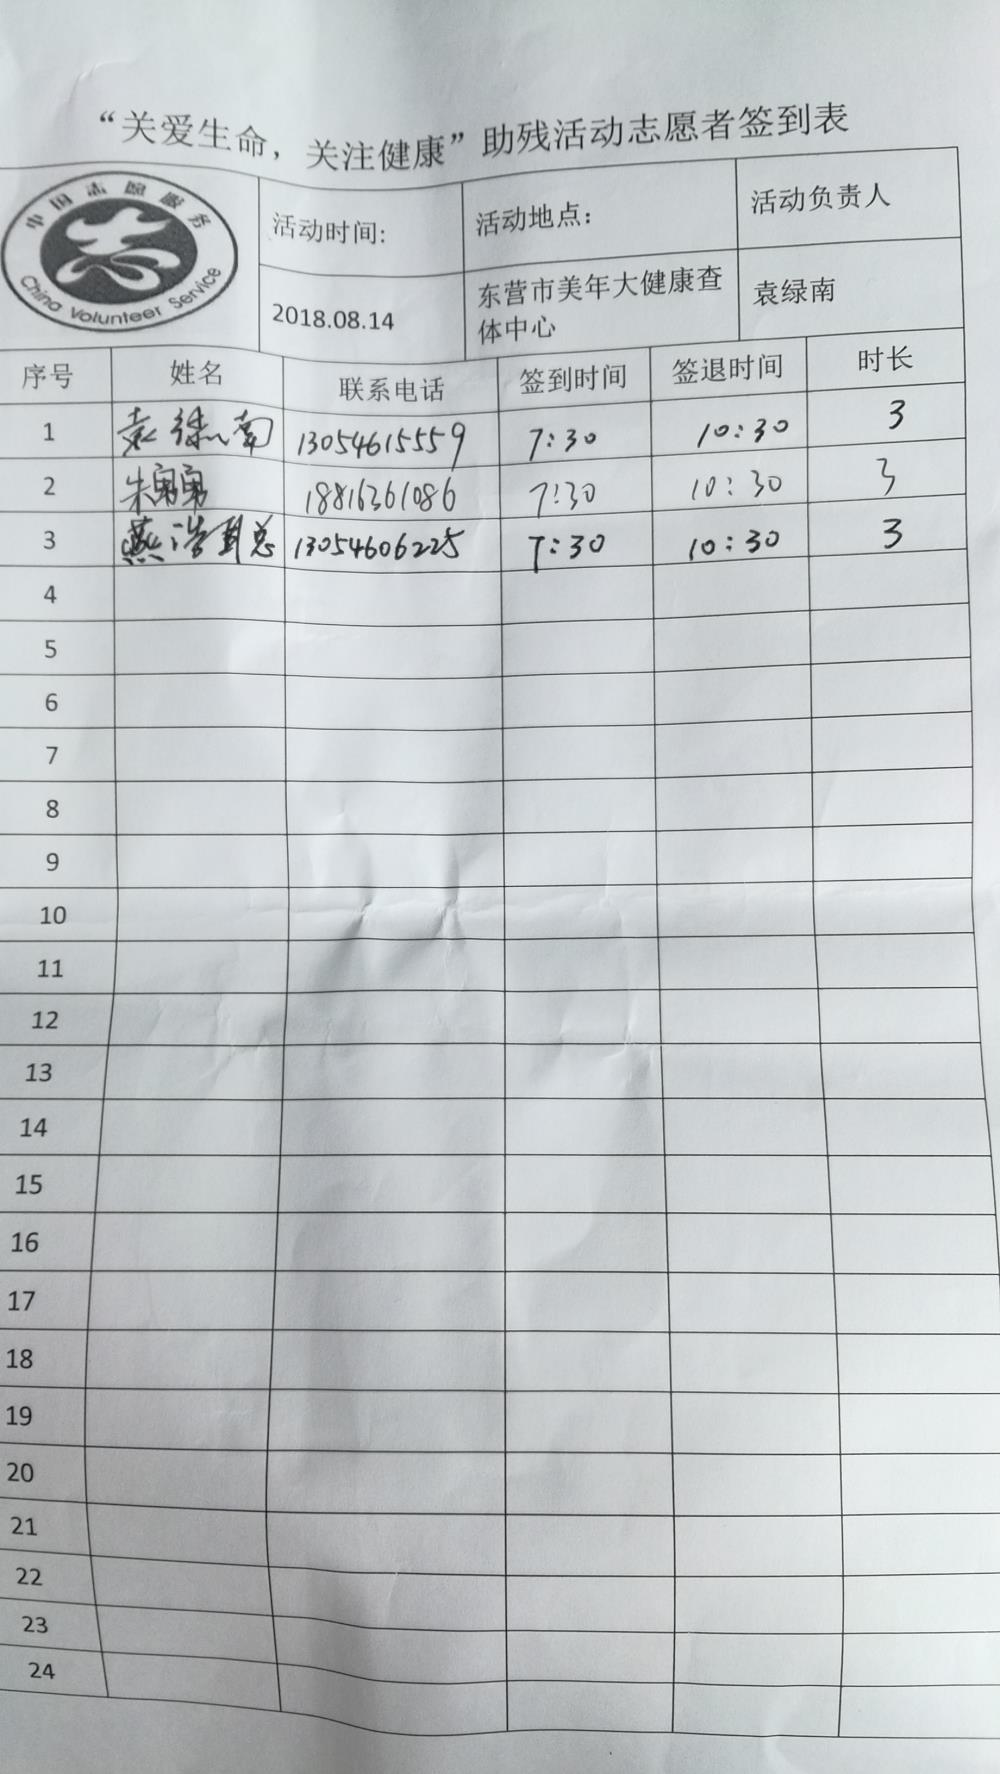 “关爱生命，关注健康”助残活动志愿者签到表
中国志愿服务
China Volunteer Service
活动时间: 活动地点： 活动负责人
2018.08.14 东营市美年大健康查体中心 袁绿南
序号 姓名 联系电话 签到时间 签退时间 时长
1 袁绿南 13054615559 7:30 10:30 3
2 朱勇勇 18816361086 7:30 10:30 3
3 燕浩 13054606225 7:30 10:30 3
4
5
6
7
8
9
10
11
12
13
14
15
16
17
18
19
20
21
22
23
24